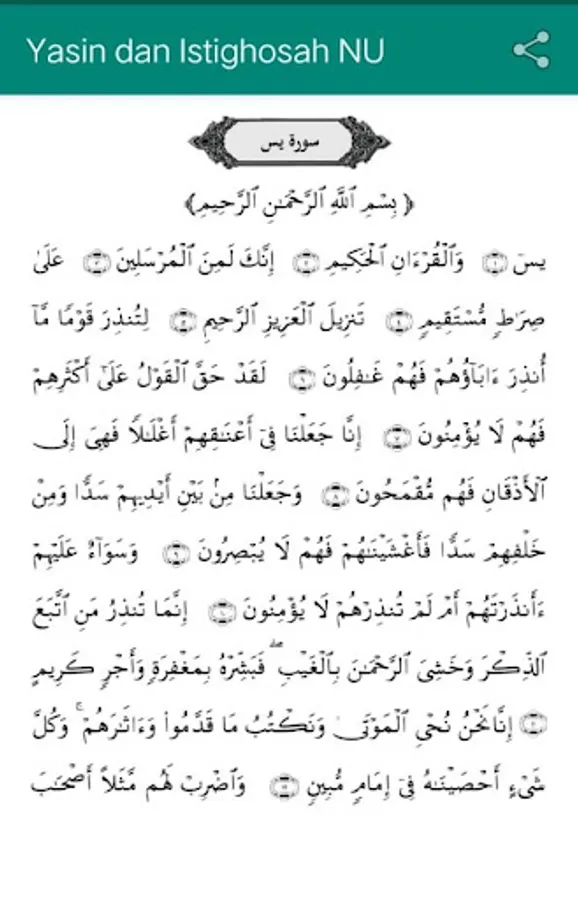 Yasin dan Istighosah NU
سورة يس
﴿ بِسْمِ ٱللَّهِ ٱلرَّحْمَـٰنِ ٱلرَّحِيمِ ﴾
يسٓ ۝١ وَٱلْقُرْءَانِ ٱلْحَكِيمِ ۝٢ إِنَّكَ لَمِنَ ٱلْمُرْسَلِينَ ۝٣ عَلَىٰ
صِرَٰطٍ مُّسْتَقِيمٍ ۝٤ تَنزِيلَ ٱلْعَزِيزِ ٱلرَّحِيمِ ۝٥ لِتُنذِرَ قَوْمًا مَّآ
أُنذِرَ ءَابَآؤُهُمْ فَهُمْ غَـٰفِلُونَ ۝٦ لَقَدْ حَقَّ ٱلْقَوْلُ عَلَىٰٓ أَكْثَرِهِمْ
فَهُمْ لَا يُؤْمِنُونَ ۝٧ إِنَّا جَعَلْنَا فِىٓ أَعْنَـٰقِهِمْ أَغْلَـٰلًا فَهِىَ إِلَى
ٱلْأَذْقَانِ فَهُم مُّقْمَحُونَ ۝٨ وَجَعَلْنَا مِنۢ بَيْنِ أَيْدِيهِمْ سَدًّا وَمِنْ
خَلْفِهِمْ سَدًّا فَأَغْشَيْنَـٰهُمْ فَهُمْ لَا يُبْصِرُونَ ۝٩ وَسَوَآءٌ عَلَيْهِمْ
ءَأَنذَرْتَهُمْ أَمْ لَمْ تُنذِرْهُمْ لَا يُؤْمِنُونَ ۝١٠ إِنَّمَا تُنذِرُ مَنِ ٱتَّبَعَ
ٱلذِّكْرَ وَخَشِىَ ٱلرَّحْمَـٰنَ بِٱلْغَيْبِ ۖ فَبَشِّرْهُ بِمَغْفِرَةٍ وَأَجْرٍ كَرِيمٍ
۝١١ إِنَّا نَحْنُ نُحْىِ ٱلْمَوْتَىٰ وَنَكْتُبُ مَا قَدَّمُوا۟ وَءَاثَـٰرَهُمْ ۚ وَكُلَّ
شَىْءٍ أَحْصَيْنَـٰهُ فِىٓ إِمَامٍ مُّبِينٍ ۝١٢ وَٱضْرِبْ لَهُم مَّثَلًا أَصْحَـٰبَ